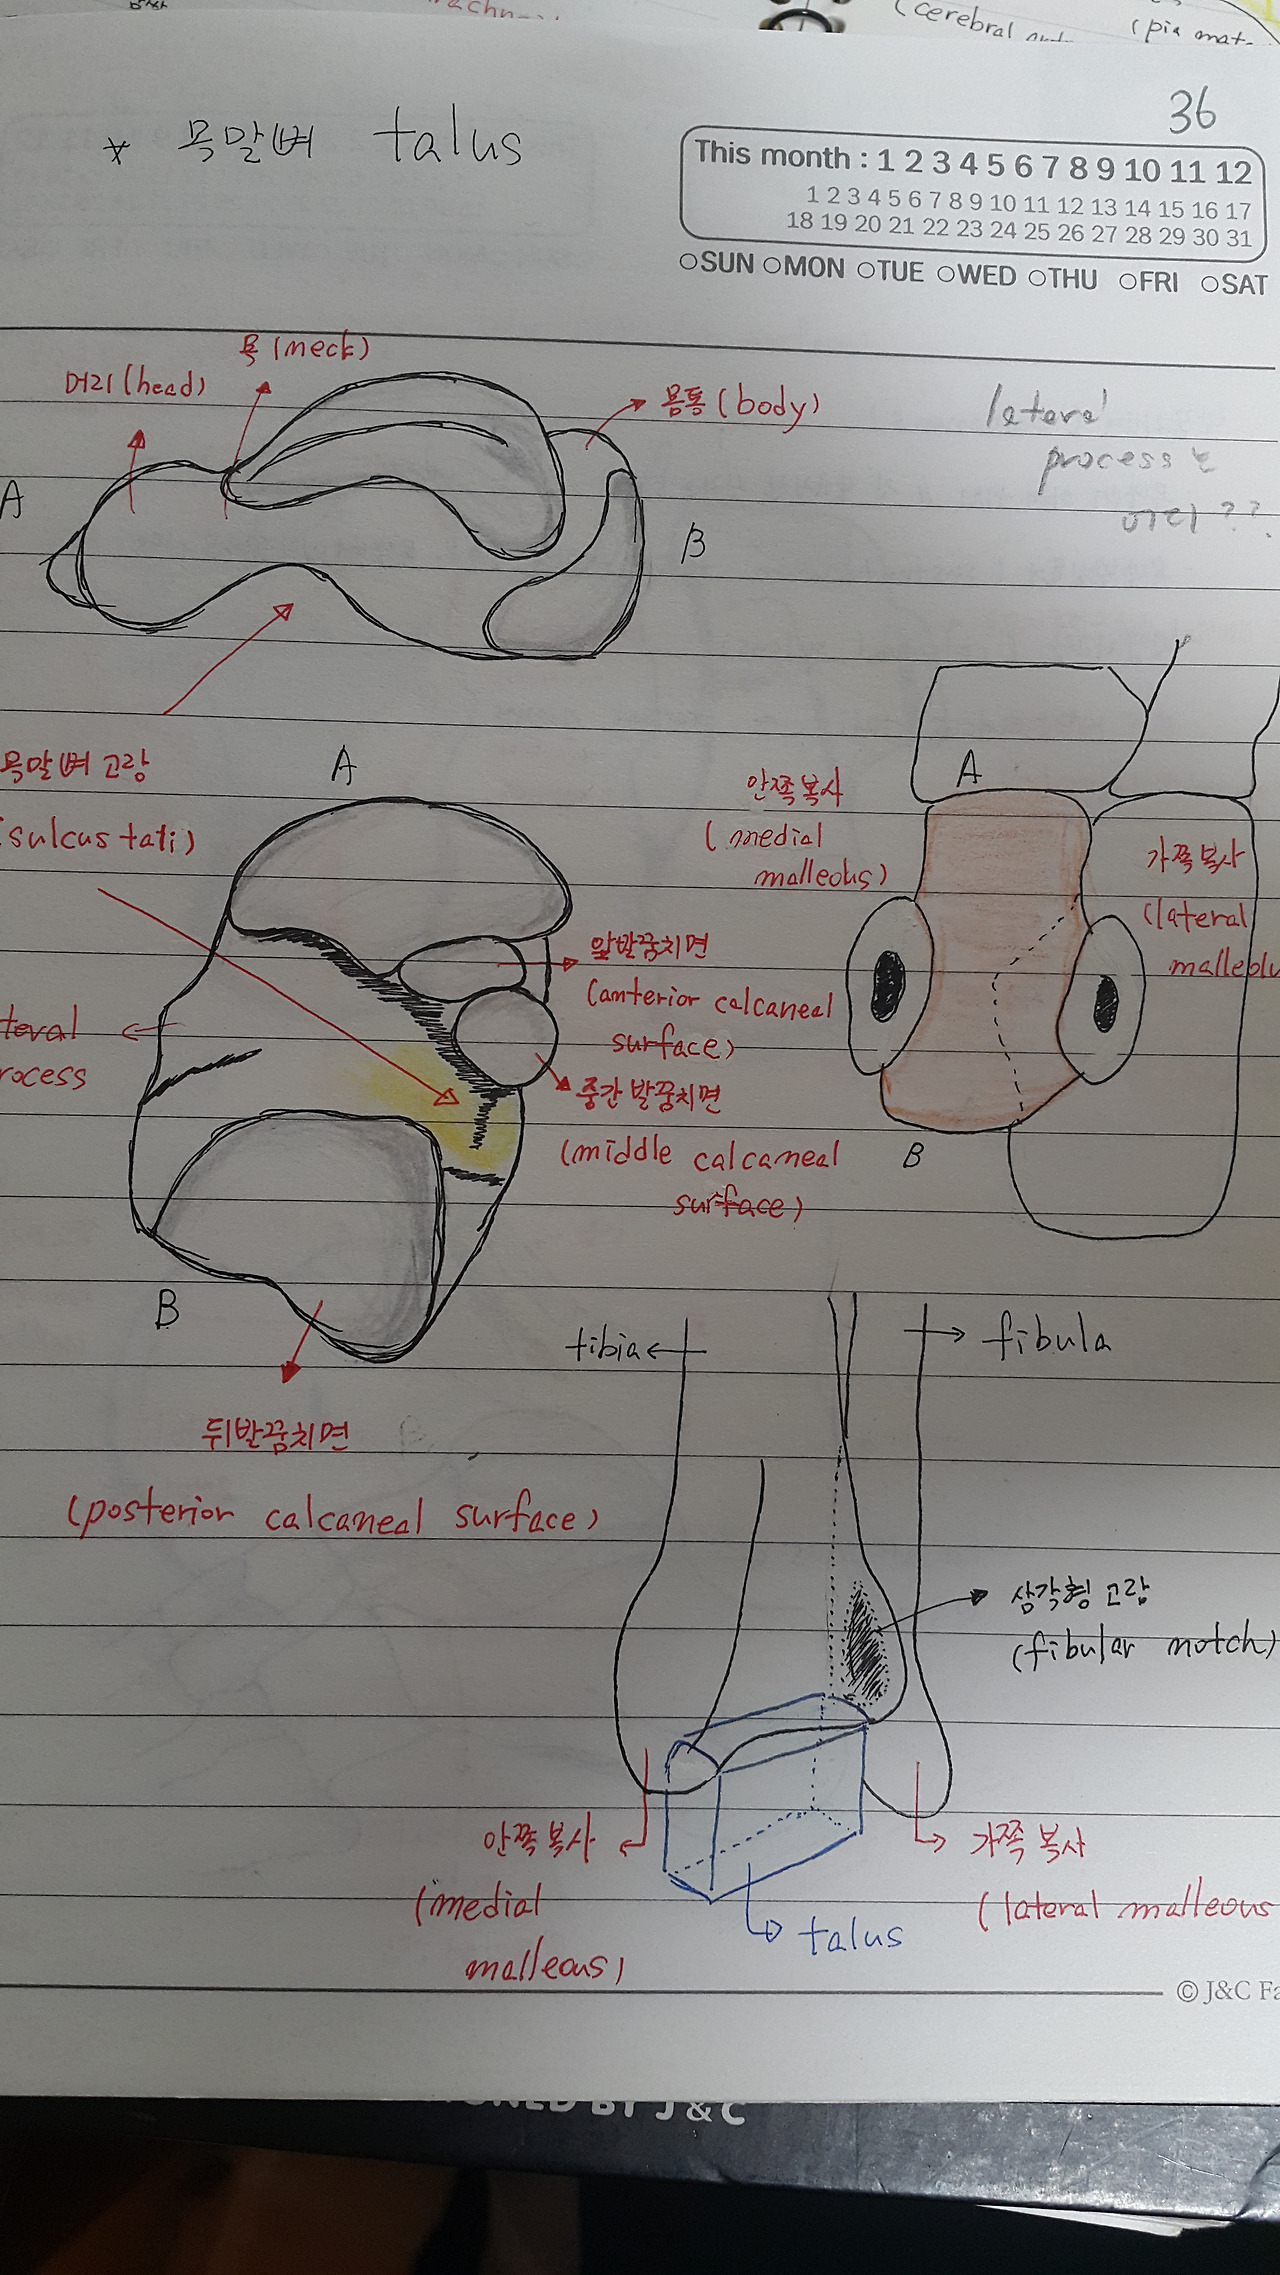 (cerebral
(pia mat
36
* 목말뼈 talus
This month : 1 2 3 4 5 6 7 8 9 10 11 12
1 2 3 4 5 6 7 8 9 10 11 12 13 14 15 16 17
18 19 20 21 22 23 24 25 26 27 28 29 30 31
○SUN ○MON ○TUE ○WED ○THU ○FRI ○SAT
목 (neck)
머리 (head)
몸통 (body)
lateral
process는
어디??
A
B
목말뼈 고랑
(sulcus tali)
A
teral
rocess
앞발꿈치면
(anterior calcaneal
surface)
중간 발꿈치면
(middle calcaneal
surface)
B
뒤발꿈치면
(posterior calcaneal surface)
안쪽복사
(medial
malleolus)
A
가쪽복사
(lateral
malleolu
B
tibia
fibula
삼각형 고랑
(fibular notch)
안쪽 복사
(medial
malleous)
가쪽 복사
(lateral malleous
talus
© J&C Fa
BY J&C